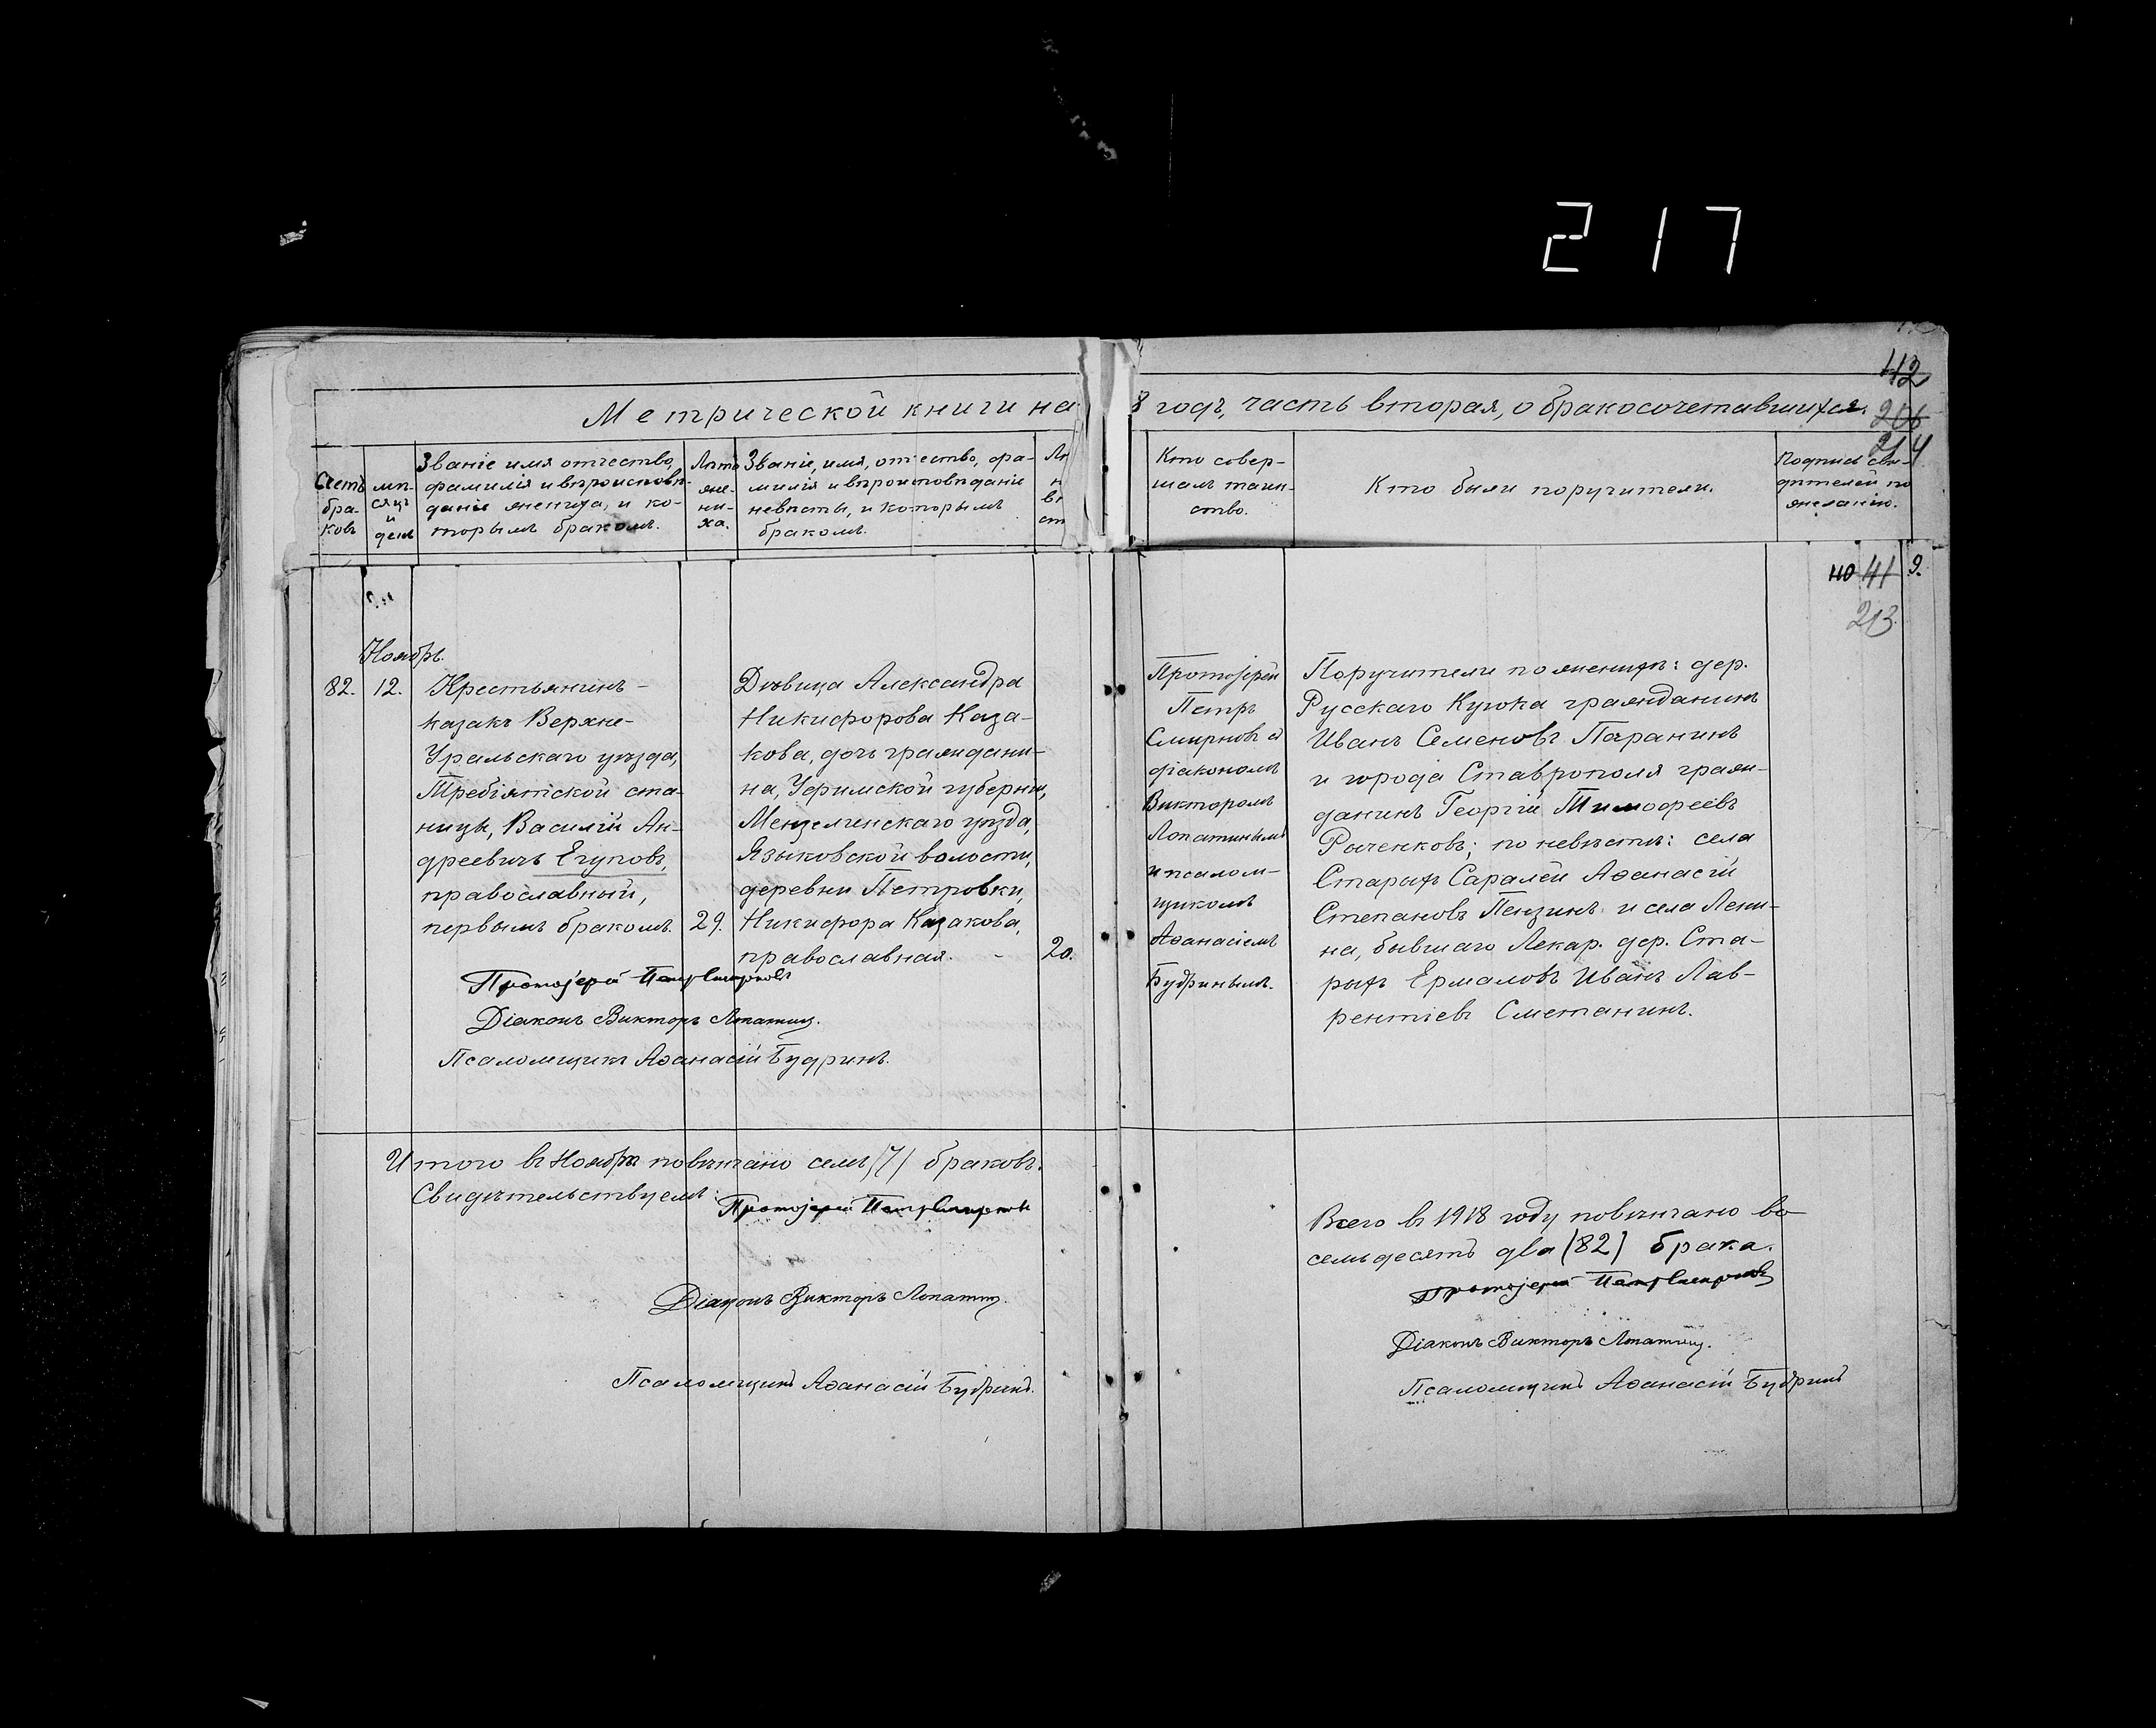 217
112
206
214
Метрической книги на 8 годъ, часть вторая, о бракосочетавшихся.
Счетъ браковъ
мѣсяцъ и день
Званіе имя отчество,
фамилія и вѣроисповѣ-
даніе жениха, и ко-
торымъ бракомъ.
Лѣта
же-
ни-
ха.
Званіе, имя, отчество, фа-
милія и вѣроисповѣданіе
невѣсты, и которымъ
бракомъ.
Кто совер-
шалъ таин-
ство.
Кто были поручители.
Подпись сви-
дѣтелей по
желанію.
110 41 9.
213
Ноябрь.
82. 12.
Крестьянинъ-
казакъ Верхне-
Уральскаго уѣзда,
Требіятской ста-
ницы, Василій Ан-
дреевичъ Егуповъ,
православный,
первымъ бракомъ.
29.
Дѣвица Александра
Никифорова Каза-
кова, дочь граждани-
на, Уфимской губерніи,
Мензелинскаго уѣзда,
Языковской волости,
деревни Петровки,
Никифора Казакова,
православная. -
20.
Протоіерей
Петръ
Смирновъ съ
діакономъ
Викторомъ
Лопатинымъ
и псалом-
щикомъ
Аѳанасіемъ
Будринымъ.
Поручители по женихѣ: дер.
Русскаго Кужка гражданинъ
Иванъ Семеновъ Паранинъ
и города Ставрополя граж-
данинъ Георгій Тимофеевъ
Рыченковъ; по невѣстѣ: села
Старыхъ Саралей Аѳанасій
Степановъ Пензинъ и села Лени-
на, бывшаго Лекар. дер. Ста-
рыхъ Ермаловъ Иванъ Лав-
рентіевъ Сметанинъ.
Протоіерей Петръ Смирновъ
Діаконъ Викторъ Лопатинъ.
Псаломщикъ Аѳанасій Будринъ.
Итого въ Ноябрѣ повѣнчано семь /7/ браковъ.
Свидѣтельствуемъ:
Протоіерей Петръ Смирновъ
Діаконъ Викторъ Лопатинъ.
Псаломщикъ Аѳанасій Будринъ.
Всего въ 1918 году повѣнчано во-
семьдесятъ два (82) брака.
Протоіерей Петръ Смирновъ
Діаконъ Викторъ Лопатинъ.
Псаломщикъ Аѳанасій Будринъ